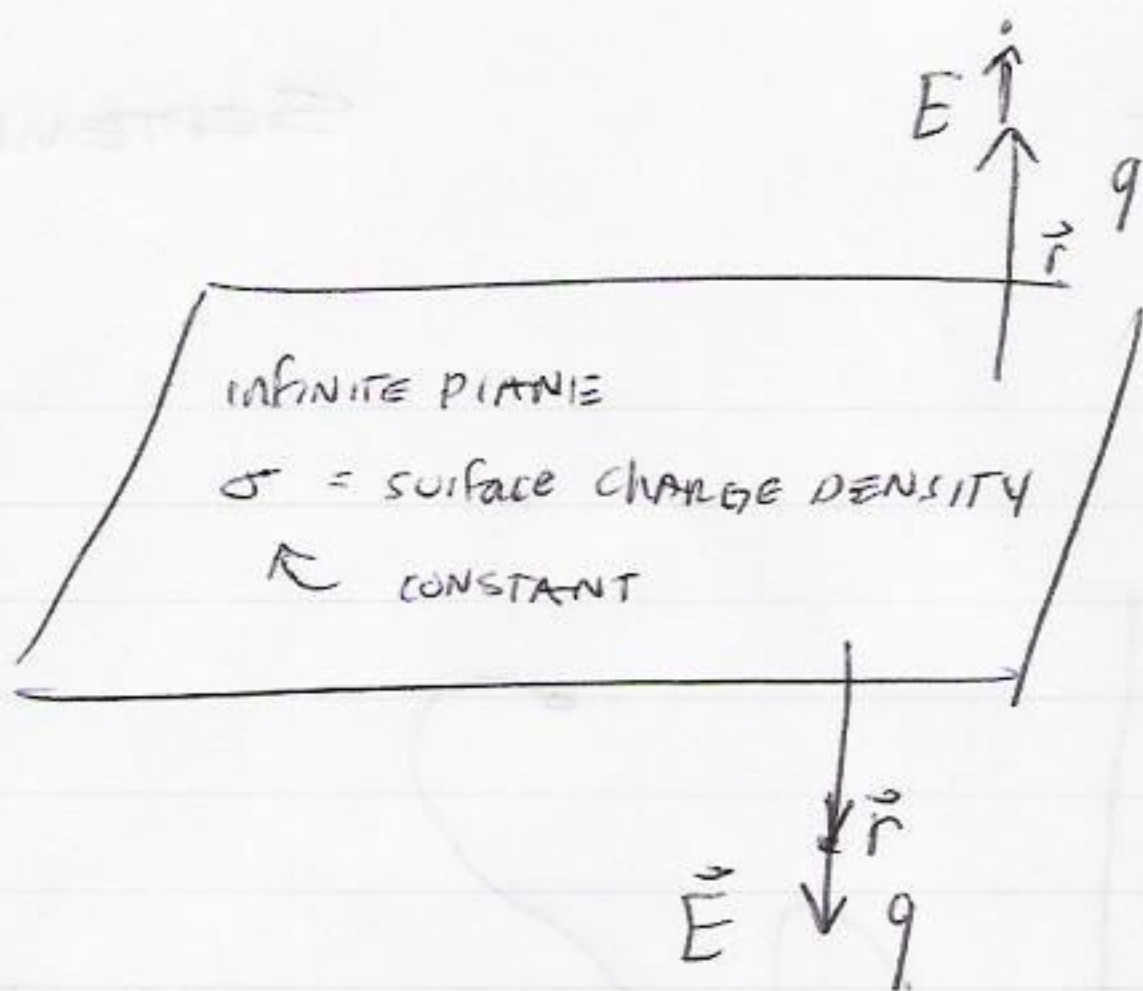 E
q
r⃗
INFINITE PLANE
σ = SURFACE CHARGE DENSITY
CONSTANT
r⃗
E⃗ q